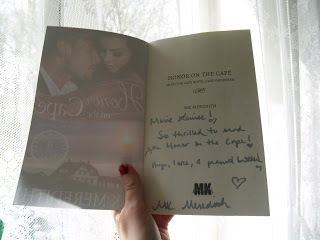 Honor
on the
Cape
MEREDITH
HONOR ON THE CAPE
MK MEREDITH
Marie Louise!
So thrilled to send
you Honor on the Cape!
Hugs, Love, &
MK
MK Meredith